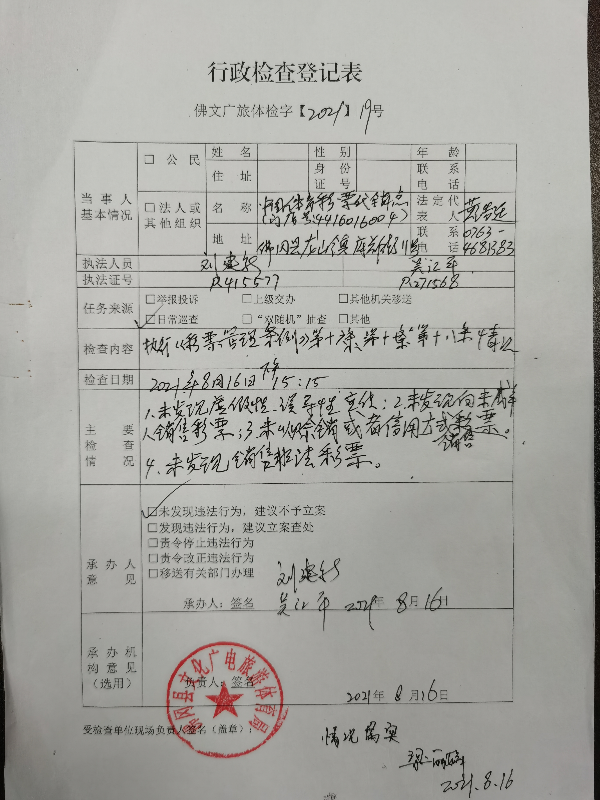 行政检查登记表
佛文广旅体检字【2021】19号
当事人基本情况
□公民 姓名 性别 年龄
住址 身份证号 联系电话
□法人或其他组织 名称 中国体育彩票代销点 法定代表人
(门店号:4416016007)
地址 联系电话 0763-4681383
执法人员 刘 吴江平
执法证号 P.415577 P.271568
任务来源 □举报投诉 □上级交办 □其他机关移送
□日常巡查 □“双随机”抽查 □其他
检查内容 执行《彩票管理条例》第十 条、第十 条、第十八条情况
检查日期 2021年8月16日下午15:15
主要检查情况
1.未发现虚假性、误导性宣传;2.未发现向未成年
人销售彩票;3.未以赊销或者信用方式销售彩票。
4.未发现销售非法彩票。
承办人意见
□未发现违法行为,建议不予立案
□发现违法行为,建议立案查处
□责令停止违法行为
□责令改正违法行为
□移送有关部门办理
刘
承办人:签名 吴江平 2021年8月16日
承办机构意见(选用)
佛冈县文化广电旅游体育局
负责人:签名
2021年8月16日
受检查单位现场负责人签名(盖章): 情况属实
2021.8.16